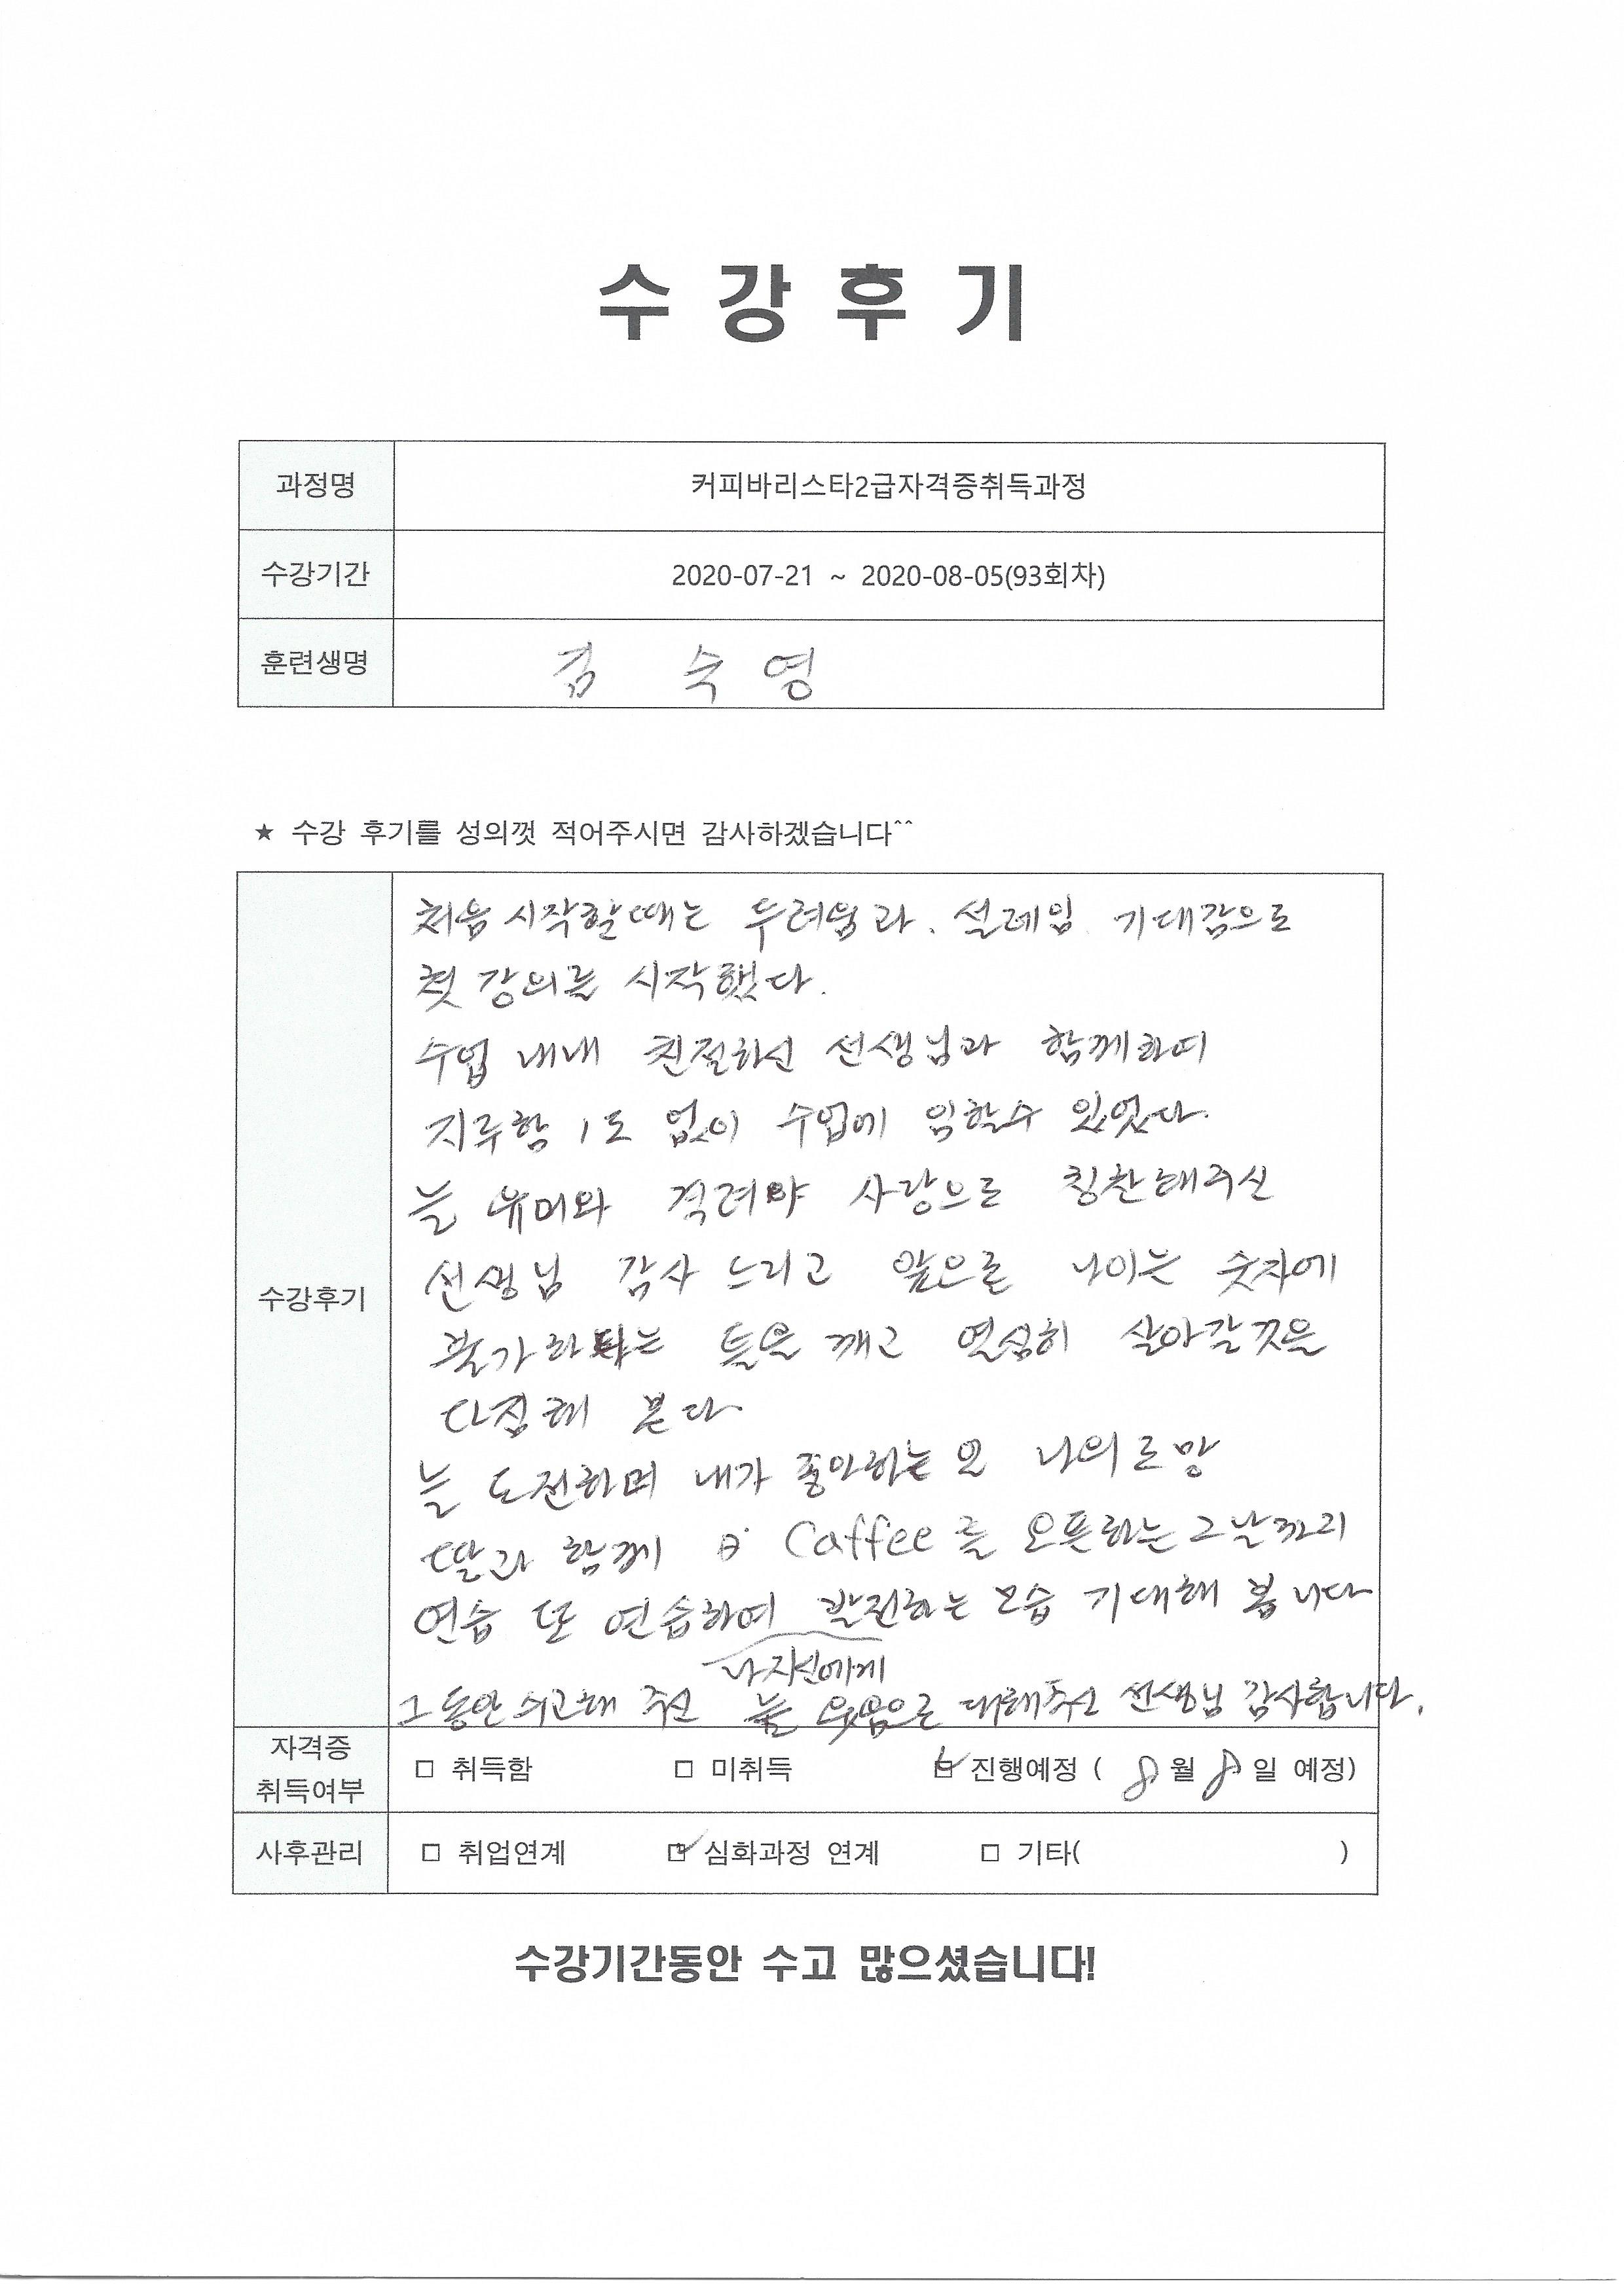 수강후기
과정명 커피바리스타2급자격증취득과정
수강기간 2020-07-21 ~ 2020-08-05(93회차)
훈련생명 김 숙영
★ 수강 후기를 성의껏 적어주시면 감사하겠습니다^^
수강후기
처음 시작할때는 두려움과. 설레임 기대감으로
첫 강의를 시작했다.
수업 내내 친절하신 선생님과 함께하여
지루함 1도 없이 수업에 임할수 있었다.
늘 유머와 격려와 사랑으로 칭찬해주신
선생님 감사 드리고 앞으로 나이는 숫자에
불가하다는 틀을 깨고 열심히 살아갈것을
다짐해 본다
늘 도전하며 내가 좋아하는 일 나의 로망
딸과 함께 Caffee를 오픈하는 그날까지
연습 또 연습하여 발전하는 모습 기대해 봅니다
나자신에게
그동안 수고해 주신 늘 웃음으로 대해주신 선생님 감사합니다.
자격증 취득여부 □ 취득함 □ 미취득 ☑ 진행예정 ( 8월 8일 예정)
사후관리 □ 취업연계 ☑ 심화과정 연계 □ 기타( )
수강기간동안 수고 많으셨습니다!